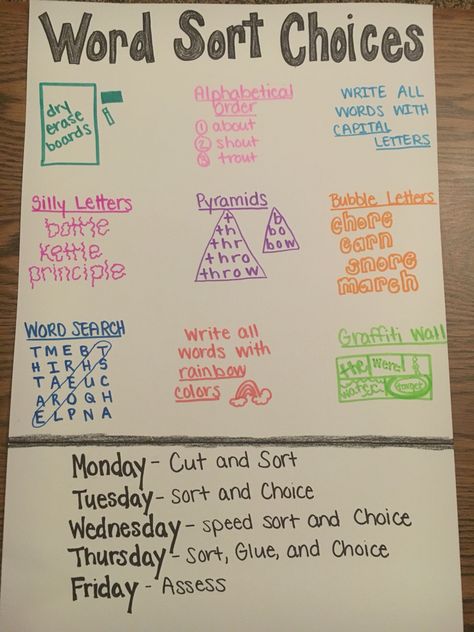 Word Sort Choices
dry
erase
boards
Alphabetical
Order
① about
② shout
③ trout
WRITE ALL
WORDS WITH
CAPITAL
LETTERS
Silly Letters
bottle
kettle
principle
Pyramids
t
th
thr
thro
throw
b
bo
bow
Bubble Letters
chore
earn
snore
march
WORD SEARCH
T M E B T
H I R H S
T A E U C
A R O Q H
E L P N A
Write all
words with
rainbow
colors
Graffiti Wall
the were
water forget
Monday - Cut and Sort
Tuesday - Sort and Choice
Wednesday - speed sort and Choice
Thursday - Sort, Glue, and Choice
Friday - Assess